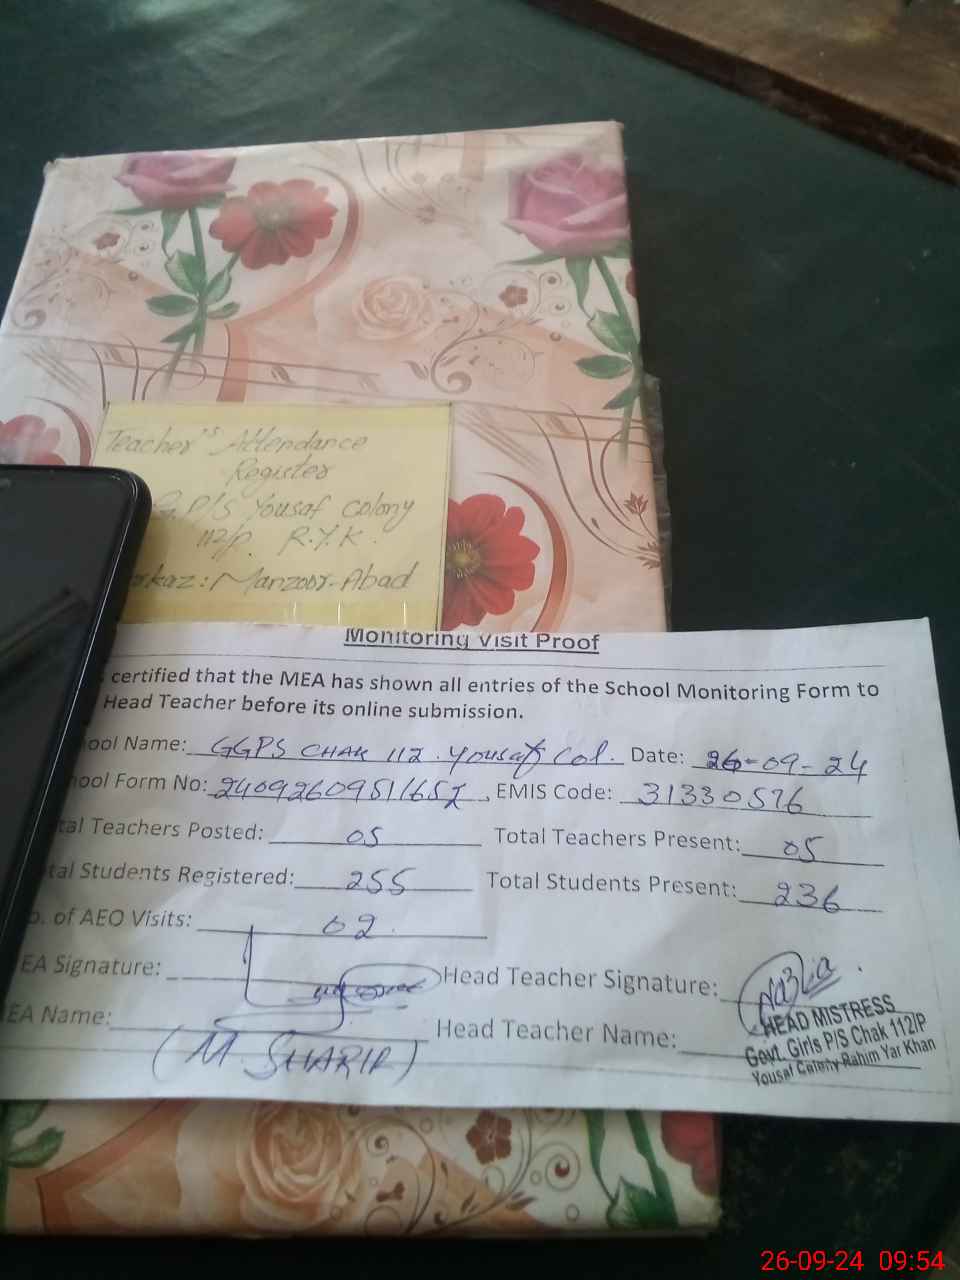 Teacher's Attendance
Register
G P/S Yousaf Colony
112/P. R.Y.K.
arkaz: Manzoor-Abad
Monitoring Visit Proof
certified that the MEA has shown all entries of the School Monitoring Form to
Head Teacher before its online submission.
ool Name: GGPS CHAK 112. Yousaf Col. Date: 26-09-24
ool Form No: EMIS Code: 31330576
tal Teachers Posted: 05 Total Teachers Present: 05
tal Students Registered: 255 Total Students Present: 236
o. of AEO Visits: 02
EA Signature: Head Teacher Signature: Nazia
EA Name: (M. SHARIF) Head Teacher Name:
HEAD MISTRESS
Govt. Girls P/S Chak 112/P
Yousaf Colony Rahim Yar Khan
26-09-24 09:54